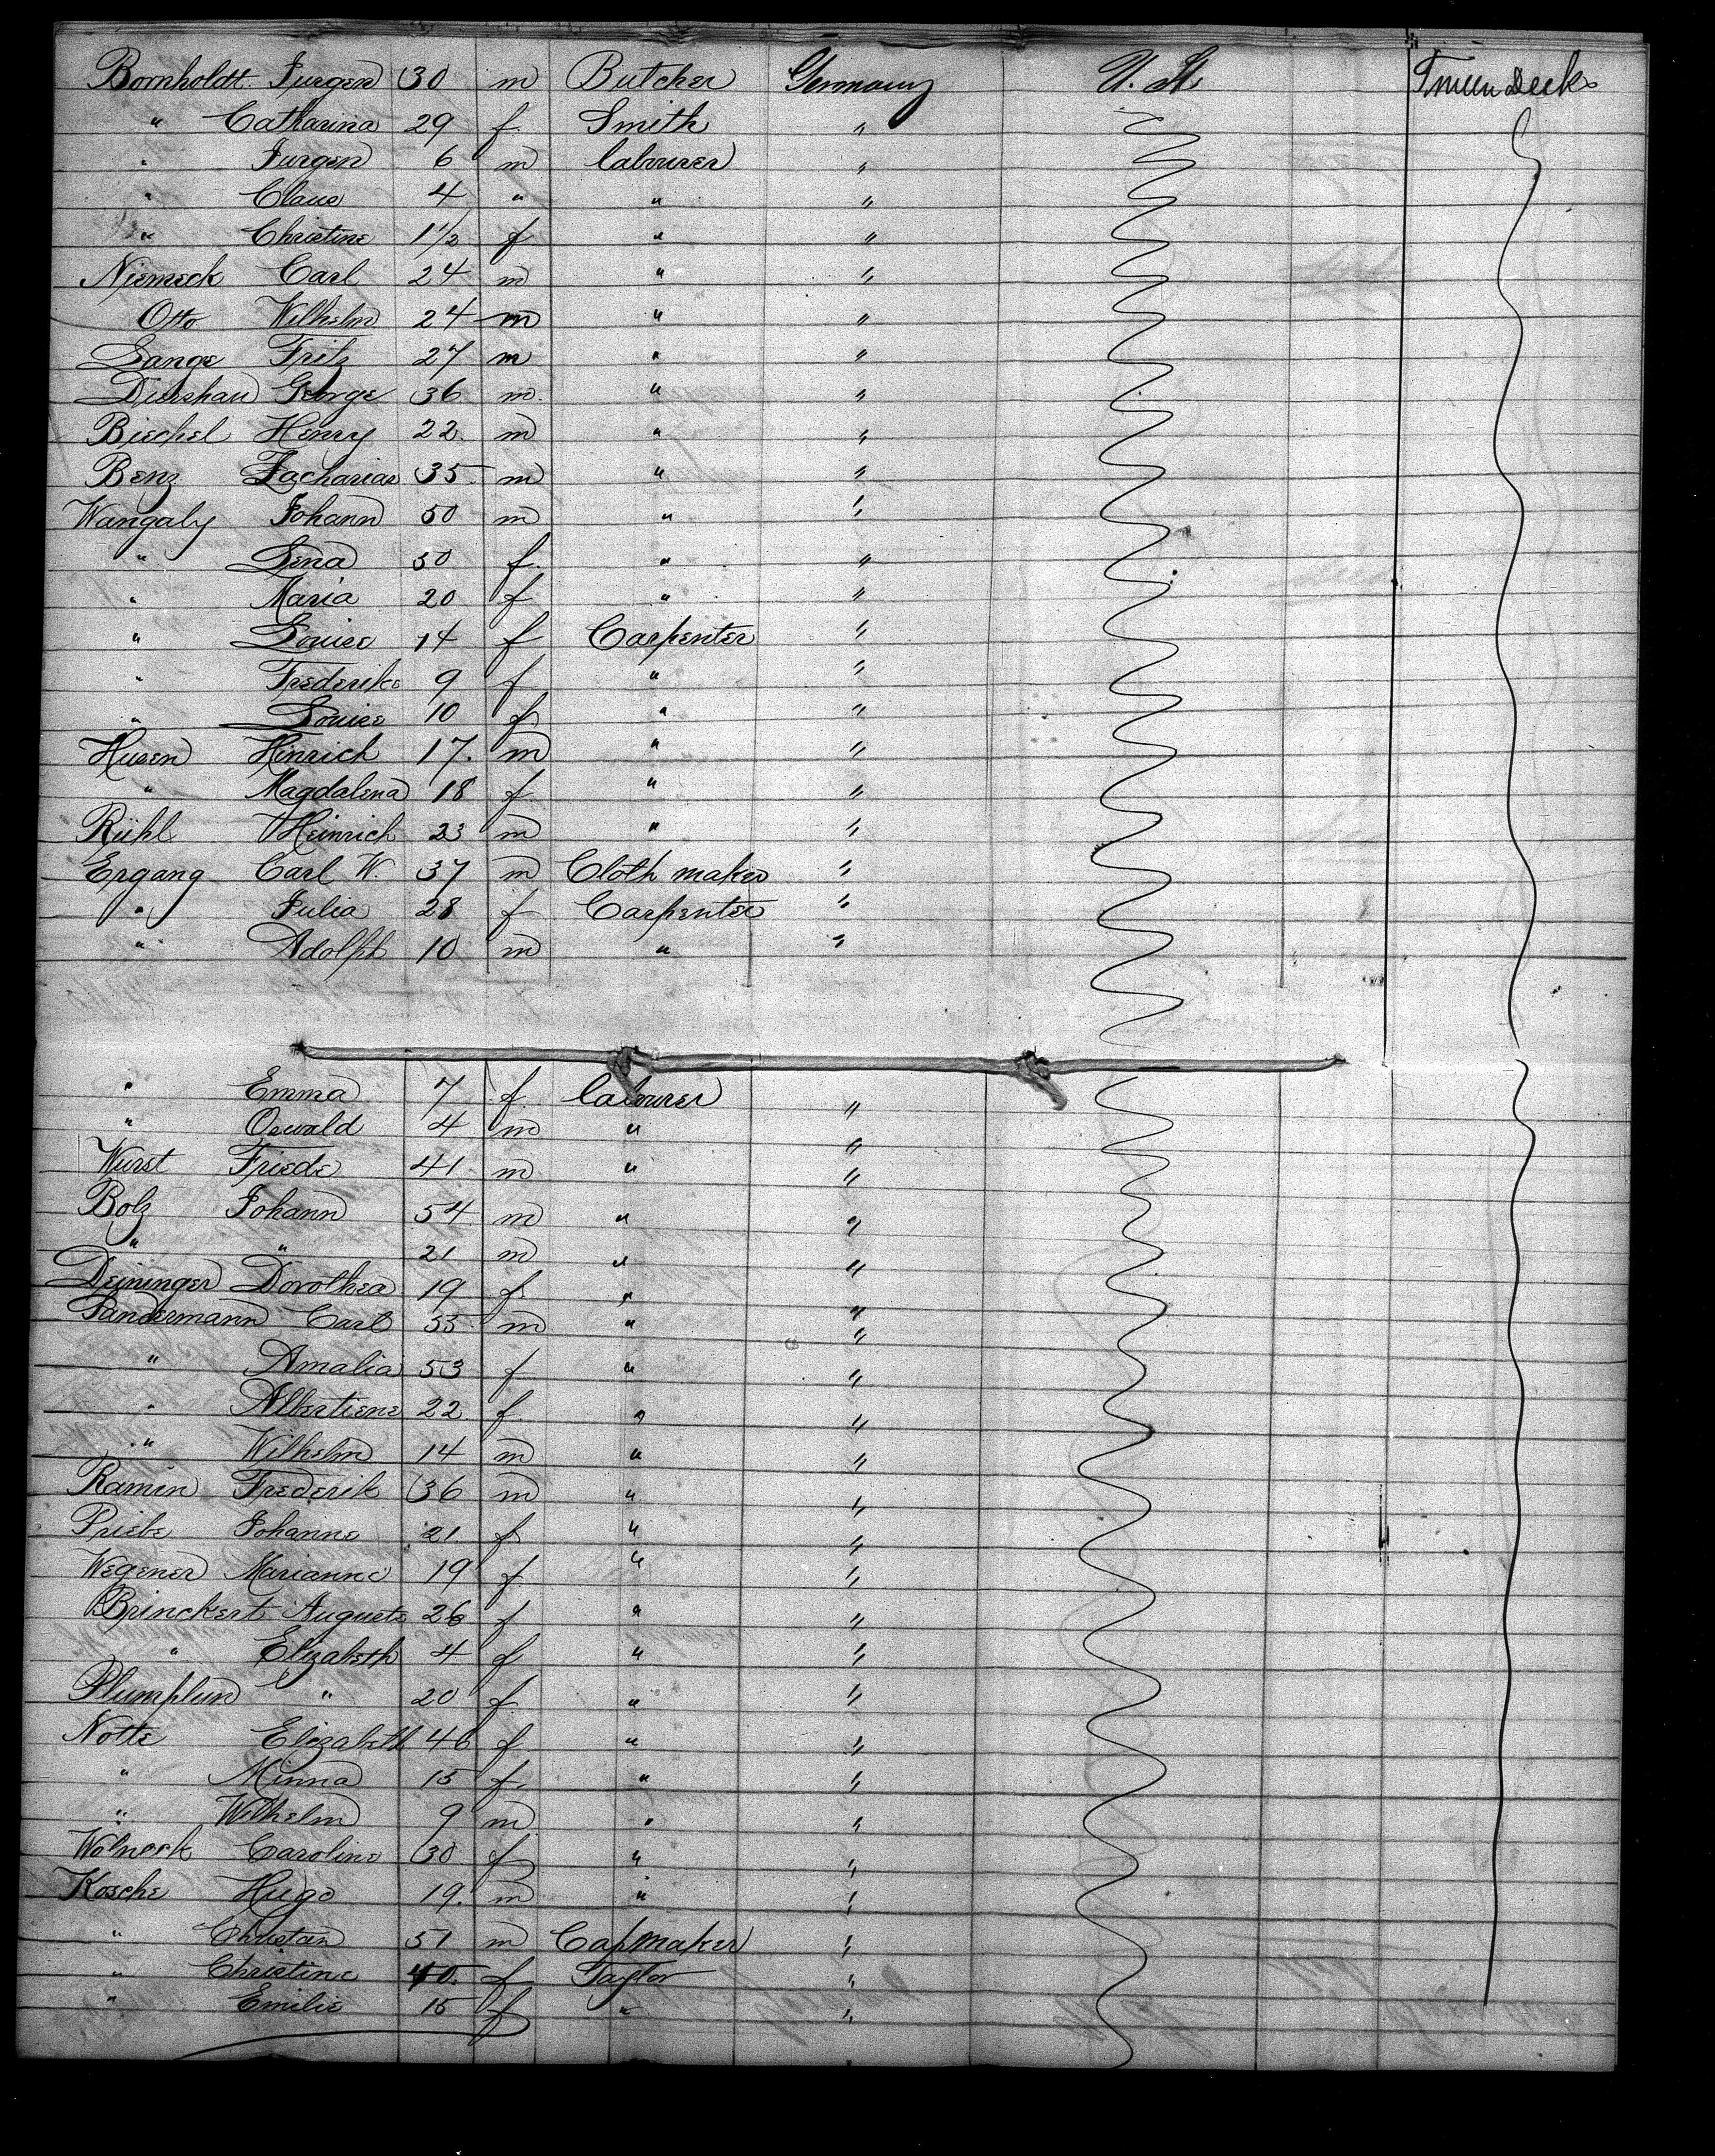 Bornholdt Jurgen 30 m Butcher Germany U. St. Tween Deck
" Catharina 29 f Smith "
" Jurgen 6 m labourer "
" Claus 4 " " "
" Christine 1 1/2 f " "
Niemeck Carl 24 m " "
Otto Wilhelm 24 m " "
Lange Fritz 27 m " "
Diershau George 36 m. " "
Biechel Henry 22. m " "
Benz Zacharias 35 m " "
Wangaly Johann 50 m " "
" Lena 50 f. " "
" Maria 20 f " "
" Louise 14 f Carpenter "
" Frederike 9 f " "
" Louise 10 f " "
Husen Hinrich 17. m " "
" Magdalena 18 f " "
Rühl Heinrich 23 m " "
Ergang Carl W. 37 m Cloth maker "
" Julia 28 f Carpenter "
" Adolph 10 m " "
" Emma 7 f labourer "
" Oswald 4 m " "
Wurst Friede 41 m " "
Bolz Johann 54 m " "
" " 21 m " "
Deininger Dorothea 19 f " "
Sandermann Carl 55 m " "
" Amalia 53 f " "
" Albertiene 22 f " "
" Wilhelm 14 m " "
Ramin Frederik 36 m " "
Priebe Johanne 21 f " "
Wegener Marianne 19 f " "
Brinckert Auguste 26 f " "
" Elizabeth 4 f " "
Plumplun " 20 f " "
Notte Elizabeth 46 f " "
" Minna 15 f. " "
" Wilhelm 9 m " "
Wolneck Caroline 30 f " "
Kosche Hugo 19. m " "
" Christan 51 m Capmaker "
" Christine 40 f Taylor "
" Emilie 15 f " "